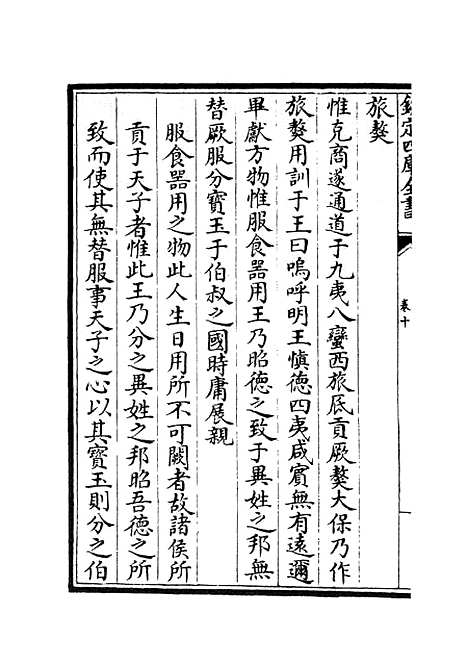 欽定四庫全書
卷十
旅獒
惟克商遂通道于九夷八蠻西旅厎貢厥獒大保乃作
旅獒用訓于王曰嗚呼明王慎德四夷咸賓無有遠邇
畢獻方物惟服食器用王乃昭德之致于異姓之邦無
替厥服分寶玉于伯叔之國時庸展親
服食器用之物此人生日用所不可闕者故諸侯所
貢于天子者惟此王乃分之異姓之邦昭吾德之所
致而使其無替服事天子之心以其寶玉則分之伯